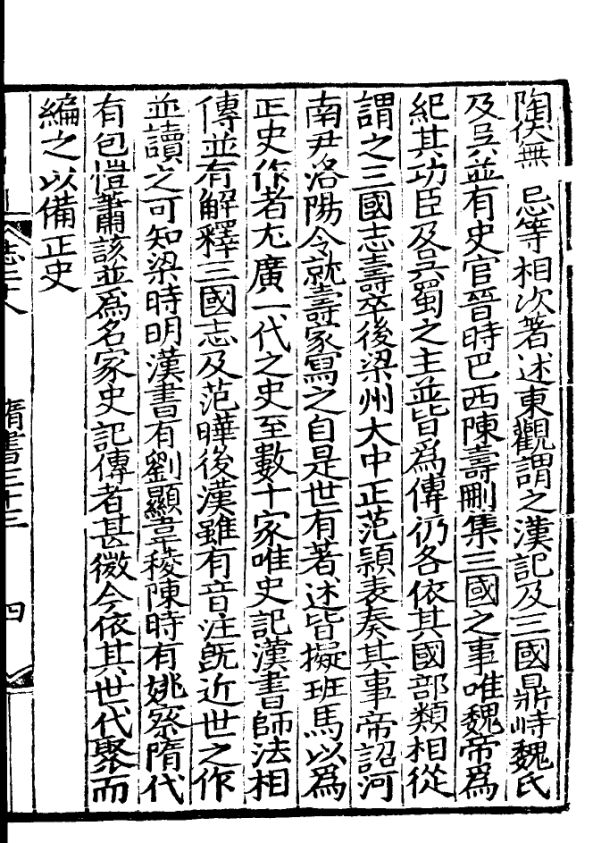 陶伏無忌等相次著述東觀謂之漢記及三國鼎峙魏氏
及吳並有史官晉時巴西陳壽刪集三國之事唯魏帝爲
紀其功臣及吳蜀之主並皆爲傳仍各依其國部類相從
謂之三國志壽卒後梁州大中正范頵表奏其事帝詔河
南尹洛陽令就壽家寫之自是世有著述皆擬班馬以爲
正史作者尤廣一代之史至數十家唯史記漢書師法相
傳並有解釋三國志及范曄後漢雖有音注旣近世之作
並讀之可知梁時明漢書有劉顯韋稜陳時有姚察隋代
有包愷蕭該並爲名家史記傳者甚微今依其世代聚而
編之以備正史
志二十八 隋書三十三 四